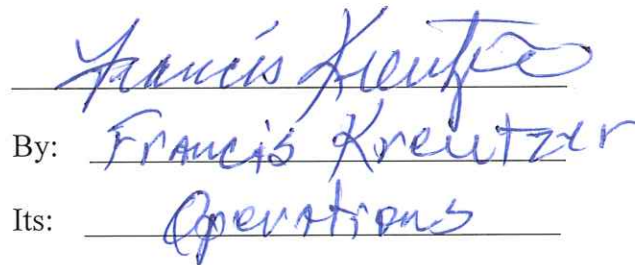 Francis Kreutzer
By: Francis Kreutzer
Its: Operations